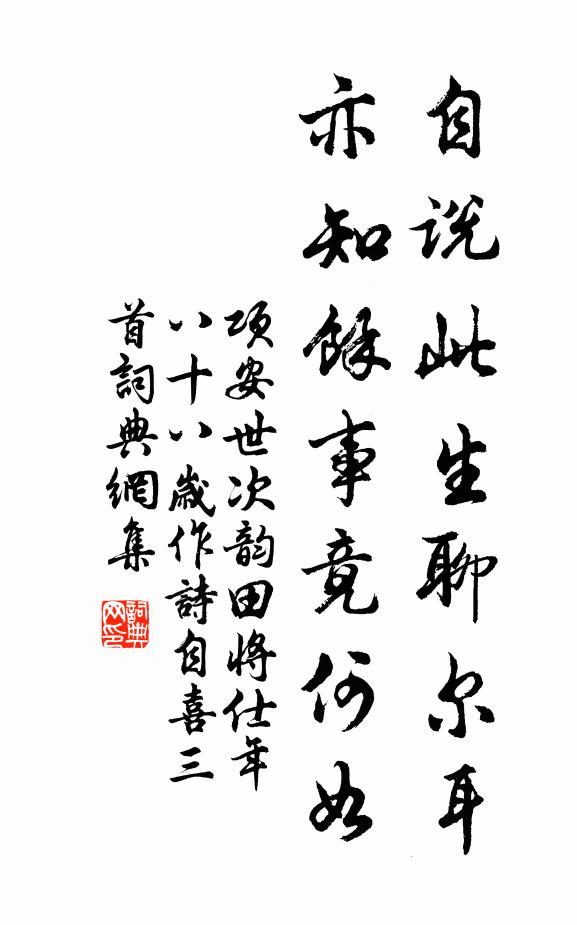 自说此生聊尔耳
亦知馀事竟何如
项安世次韵田将仕年
八十八岁作诗自喜三
首词典网集
词典网印